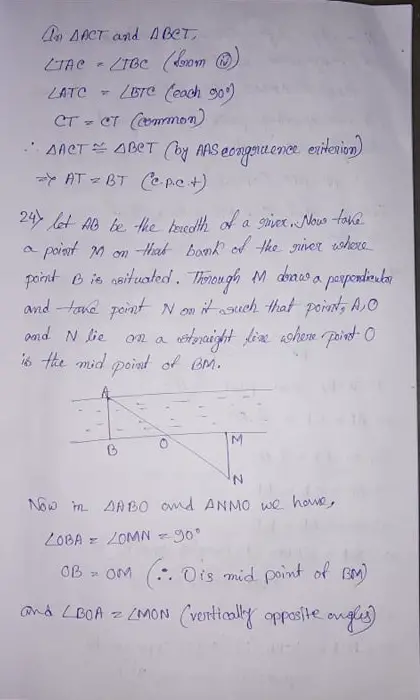 In ΔACT and ΔBCT,
∠TAC = ∠TBC (from (iv))
∠ATC = ∠BTC (each 90°)
CT = CT (common)
∴ ΔACT ≅ ΔBCT (by AAS congruence criterion)
⇒ AT = BT (C.P.C.t)
24) let AB be the bredth of a river. Now take
a point M on that bank of the river where
point B is situated. Through M draw a perpendicular
and take point N on it such that point, A, O
and N lie on a straight line where point O
is the mid point of BM.
A
B O M
N
Now in ΔABO and ΔNMO we have,
∠OBA = ∠OMN = 90°
OB = OM (∴ O is mid point of BM)
and ∠BOA = ∠MON (vertically opposite angles)